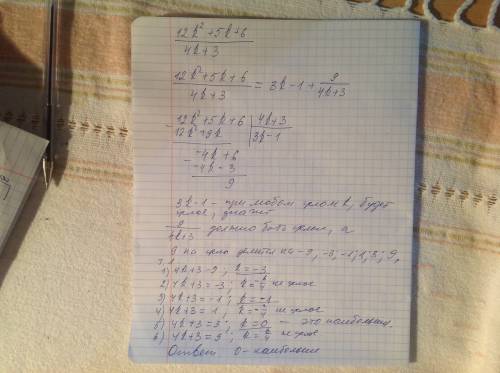 12k² + 5k + 6
4k + 3
12k² + 5k + 6
4k + 3
= 3k - 1 +
9
4k+3
12k² + 5k + 6 | 4k+3
12k² + 9k | 3k-1
- -4k + 6
-4k - 3
9
3k-1 - при любом целом k, будет
целое, значит
9
4k+3
должно быть целым, а
9 на цело делится на -9, -3, -1, 1, 3, 9,
1) 4k+3=-9; k=-3
2) 4k+3=-3; k= не целое
3) 4k+3=-1; k=-1
4) 4k+3=1; k= не целое
5) 4k+3=3; k=0 - это наибольш.
6) 4k+3=9; k= не целое
Ответ 0- наибольшее